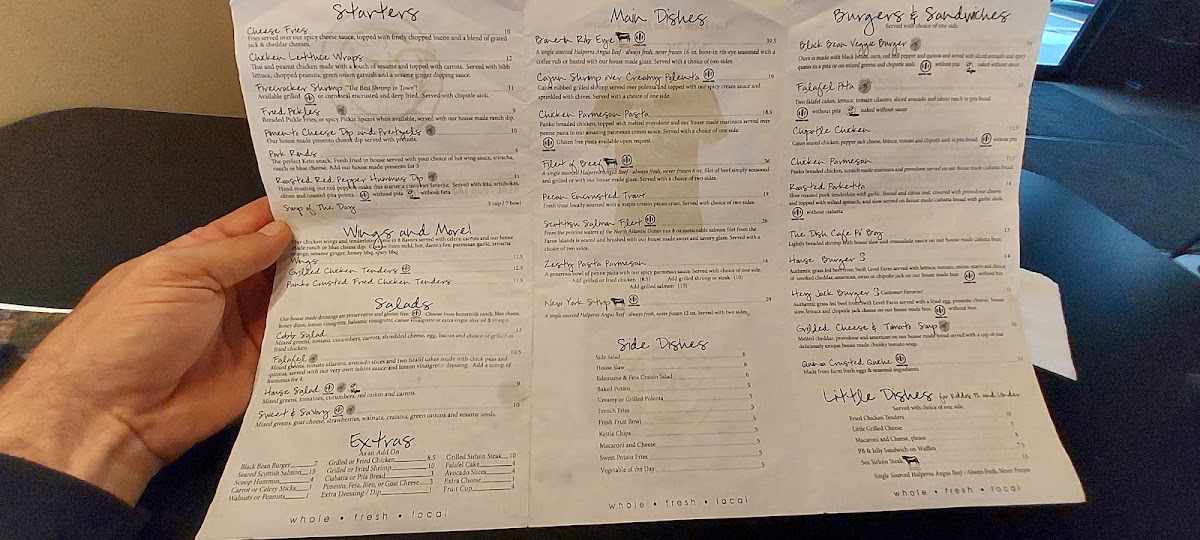 Starters
Cheese Fries 10
Fries served over our spicy cheese sauce, topped with finely chopped bacon and a blend of grated
jack & cheddar cheeses.
Chicken Lettuce Wraps 12
Thai and peanut chicken made with a touch of sesame and topped with carrots. Served with bibb
lettuce, chopped peanuts, green onion garnish and a sesame ginger dipping sauce.
Firecracker Shrimp "The Best Shrimp in Town"! 11
Available grilled or cornmeal encrusted and deep fried. Served with chipotle aioli.
Fried Pickles 9
Breaded Pickle Fries, or spicy Pickle Spears when available, served with our house made ranch dip.
Pimento Cheese Dip and Pretzels 10
Our house made pimento cheese dip served with pretzels.
Pork Rinds 6
The perfect Keto snack. Fresh fried in house served with your choice of hot wing sauce, sriracha,
ranch or blue cheese. Add our house made pimento for 3
Roasted Red Pepper Hummus Dip 11
Hand roasting our red peppers make this starter a customer favorite. Served with feta, artichokes,
olives and toasted pita points. without pita without feta
Soup of The Day 5 cup / 7 bowl
Wings and More!
Our chicken wings and tenderloins come in 8 flavors served with celery, carrots and our house
made ranch or blue cheese dip. Choose from mild, hot, dante's fire, parmesan garlic, sriracha
orange, sesame ginger, honey bbq, spicy bbq
Wings 11.5
Grilled Chicken Tenders 12.5
Panko Crusted Fried Chicken Tenders 11.5
Salads
Our house made dressings are preservative and gluten free. Choose from buttermilk ranch, blue cheese,
honey dijon, lemon vinaigrette, balsamic vinaigrette, caesar vinaigrette or extra virgin olive oil & vinegar.
Cobb Salad 13
Mixed greens, tomato, cucumbers, carrots, shredded cheese, egg, bacon and choice of grilled or
fried chicken
Falafel 10.5
Mixed greens, tomato cilantro, avocado slices and two falafel cakes made with chick peas and
quinoa, served with our very own tahini sauce and lemon vinaigrette dressing. Add a scoop of
hummus for 4
House Salad 9
Mixed greens, tomatoes, cucumbers, red onion and carrots.
Sweet & Savory 10
Mixed greens, goat cheese, strawberries, walnuts, craisins, green onions and sesame seeds.
Extras
As an Add On
Black Bean Burger 7
Seared Scottish Salmon 15
Scoop Hummus 4
Carrot or Celery Sticks 1
Walnuts or Peanuts 1
Grilled or Fried Chicken 8.5
Grilled or Fried Shrimp 10
Ciabatta or Pita Bread 1
Pimento, Feta, Bleu, or Goat Cheese 3
Extra Dressing / Dip 1
Grilled Sirloin Steak 10
Falafel Cake 4
Avocado Slices 4
Extra Cheese 1
Fruit Cup 4
whole • fresh • local
Main Dishes
Bone-in Rib Eye 39.5
A single sourced Halperns Angus Beef - always fresh, never frozen 16 oz. bone-in rib-eye seasoned with a
coffee rub or basted with our house made glaze. Served with two sides.
Cajun Shrimp over Creamy Polenta 19
Cajun rubbed grilled shrimp served over polenta and topped with our spicy cream sauce and
sprinkled with chives. Served with a choice of one side.
Chicken Parmesan Pasta 18.5
Panko breaded chicken, topped with melted provolone and our house made marinara served over
penne pasta in our amazing parmesan cream sauce. Served with a choice of one side.
Gluten free pasta available upon request.
Filet of Beef 36
A single sourced Halperns Angus Beef - always fresh, never frozen 6 oz. filet of beef simply seasoned
and grilled or with our house made glaze. Served with a choice of two sides.
Pecan Encrusted Trout 19
Fresh trout locally sourced with a maple craisin pecan crust. Served with a choice of two sides.
Scottish Salmon Filet 26
From the pristine waters of the North Atlantic Ocean our 8 oz sustainable salmon filet from the
Faroe Islands is seared and brushed with our house made sweet and savory glaze. Served with a
choice of two sides.
Zesty Pasta Parmesan 14
A generous bowl of penne pasta with our spicy parmesan sauce. Served with choice of one side.
Add grilled or fried chicken (8.5) Add grilled shrimp or steak (10)
Add grilled salmon (15)
New York Strip 29
A single sourced Halperns Angus Beef - always fresh, never frozen 12 oz. Served with two sides.
Side Dishes
Side Salad 6
House Slaw 6
Edamame & Feta Craisin Salad 6
Baked Potato 5
Creamy or Grilled Polenta 5
French Fries 5
Fresh Fruit Bowl 5
Kettle Chips 5
Macaroni and Cheese 5
Sweet Potato Fries 5
Vegetable of the Day 5
whole • fresh • local
Burgers & Sandwiches
Served with choice of one side.
Black Bean Veggie Burger
Ours is made with black beans, corn, red bell pepper and quinoa and served with sliced avocado and spicy
sauce in a pita or on mixed greens and chipotle aioli. without pita naked without sauce
Falafel Pita
Two falafel cakes, lettuce, tomato cilantro, sliced avocado and tahini ranch in pita bread
without pita naked without sauce
Chipotle Chicken 11.5
Cajun seared chicken, pepper jack cheese, lettuce, tomato and chipotle aioli in pita bread. without pita
Chicken Parmesan 11.5
Panko breaded chicken, scratch made marinara and provolone served on our house made ciabatta bread.
Roasted Porketta 14
Slow roasted pork tenderloin with garlic, fennel and citrus zest, covered with provolone cheese
and topped with wilted spinach, and slaw served on house made ciabatta bread with garlic aioli.
without ciabatta
The Dish Cafe Po' Boy 13
Lightly breaded shrimp with house slaw and remoulade sauce on our house made ciabatta bun.
House Burger 14
Authentic grass fed beef from Swift Level Farm served with lettuce, tomato, onion, mayo and choice
of smoked cheddar, american, swiss or chipotle jack on our house made bun. without bun
Hey Jack Burger Customer Favorite!
Authentic grass fed beef from Swift Level Farm served with a fried egg, pimento cheese, house
slaw, lettuce and chipotle jack cheese on our house made bun. without bun
Grilled Cheese & Tomato Soup 10
Melted cheddar, provolone and american on our house made bread served with a cup of our
deliciously unique house made chunky tomato soup.
Quinoa Crusted Quiche
Made from farm fresh eggs & seasonal ingredients.
Little Dishes for Kiddos 12 and Under
Served with choice of one side.
Fried Chicken Tenders 10
Little Grilled Cheese 7
Macaroni and Cheese, please 8
PB & Jelly Sandwich on Waffles 7.5
5oz Sirloin Steak 13
Single Sourced Halperns Angus Beef - Always Fresh, Never Frozen
whole • fresh • local